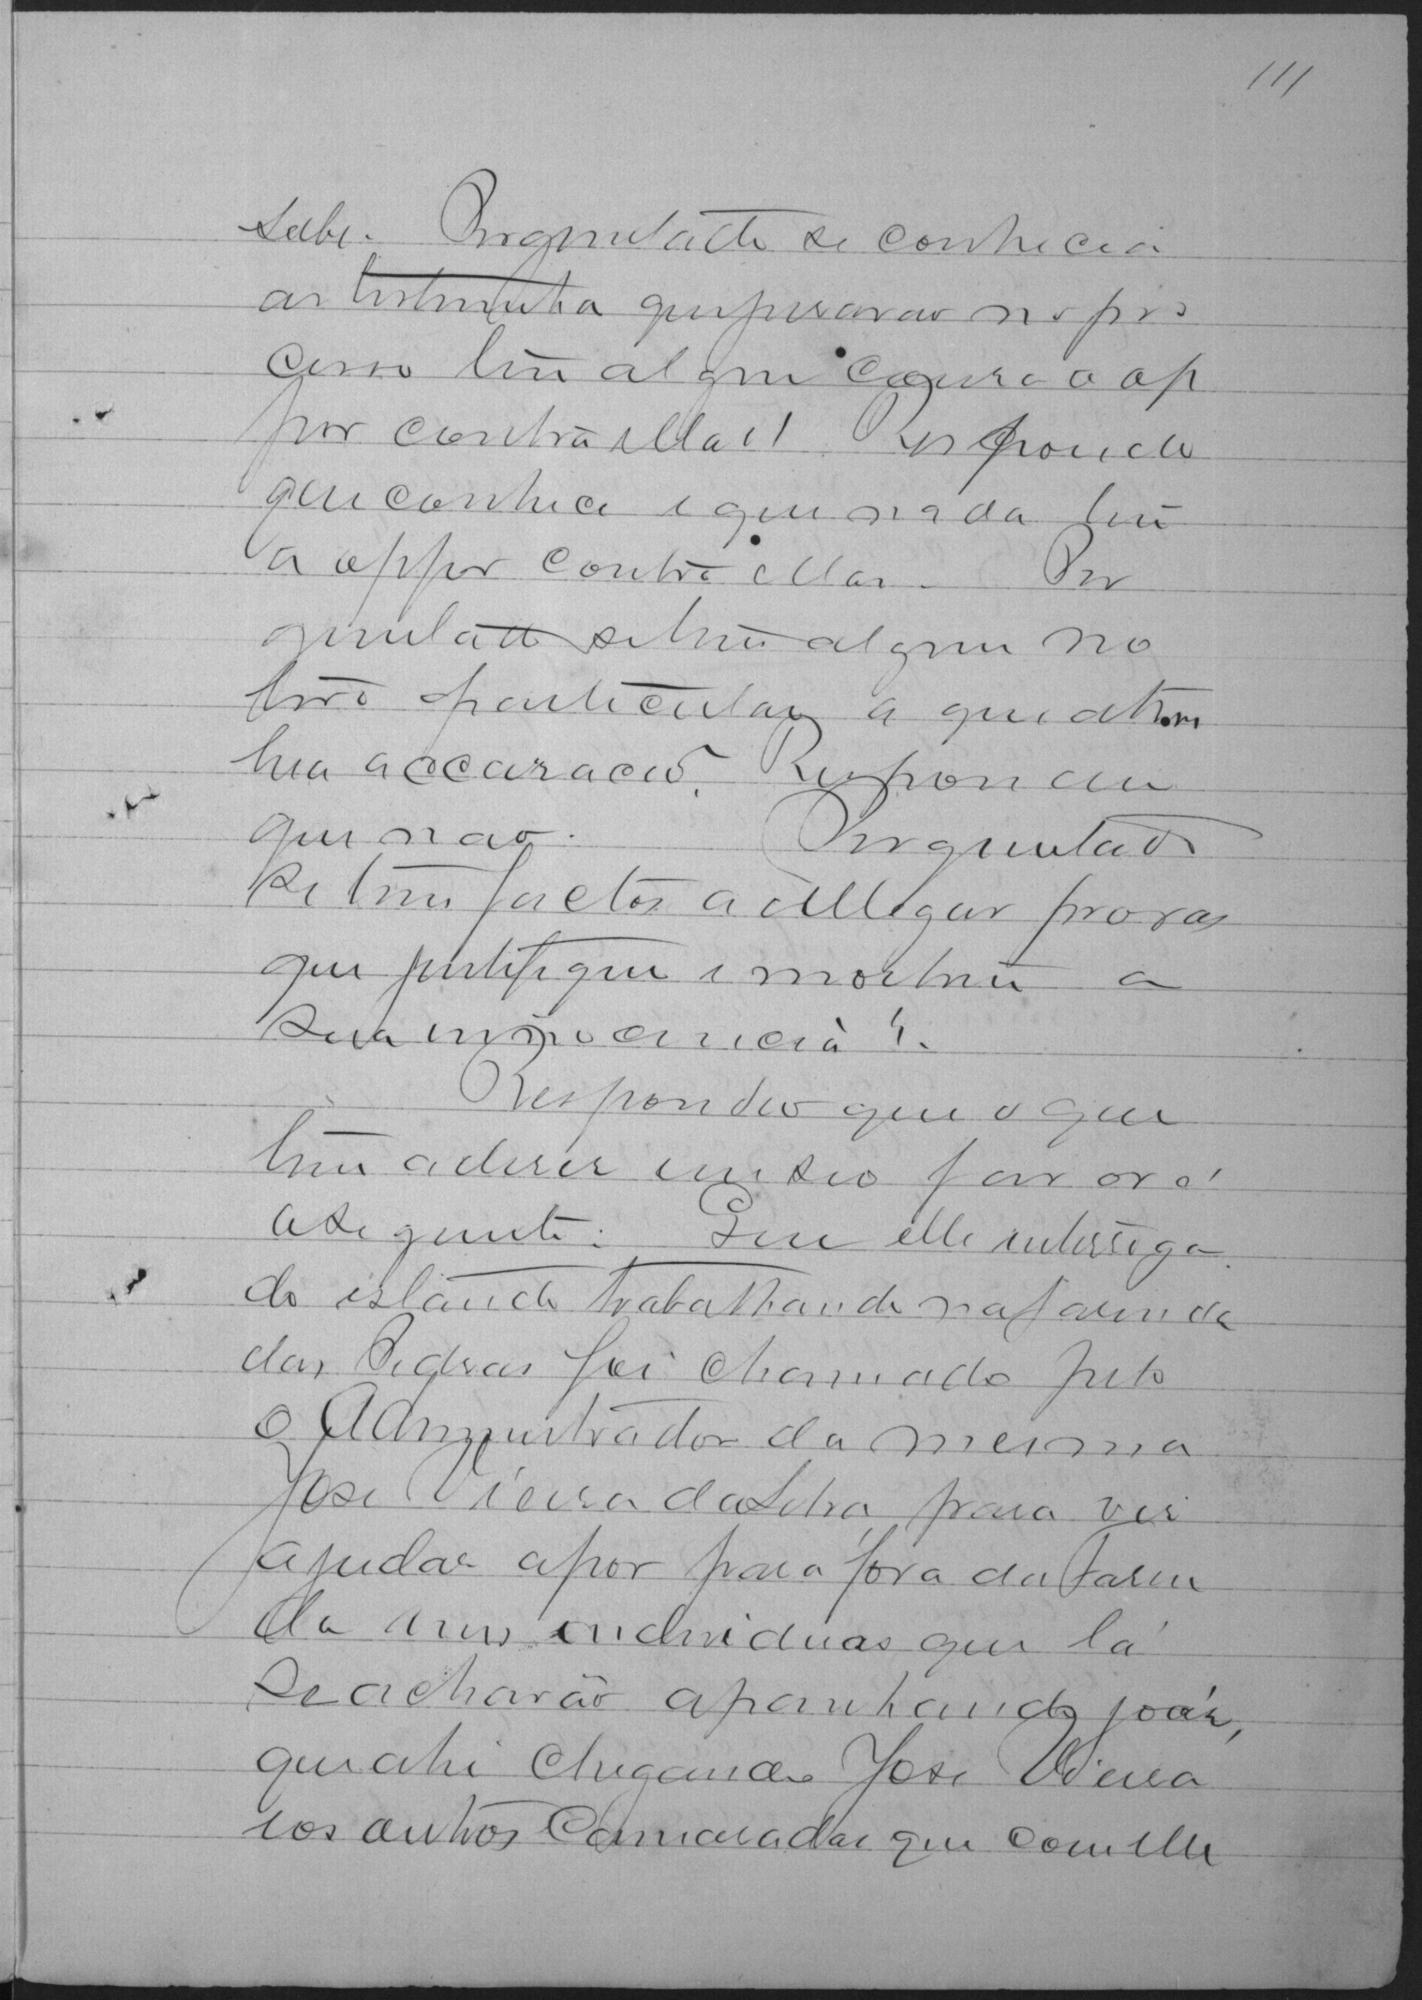 111
sabe. Perguntado se conhecia
as testemunha que jurarao no pro
cesso tem alguma cousa a op
por contra ellas? Respondo
que conhece e que nada tem
a oppor contra ellas. Per
guntado se tem algum mo
tivo particular a que attri
bua a accuzação? Respondeu
que nao. Perguntado
se tem factos a allegar provas
que justifique e mostrem a
sua innocencia?
Respondeo que o que
tem a dizer em seo favor é
a seguinte: Que elle interroga
do estando trabalhando na fazenda
das Pedras foi chamado pelo
o Administrador da mesma
Jose Vieira da Silva, para vir
ajudar a por para fora da fazen
da uns individuos que lá
se acharão apanhando
que ahi chegando Jose Vieira
e os outros Camaradas que com elle